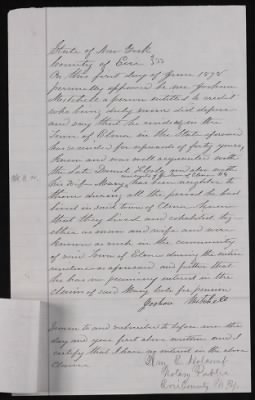 State of New York
County of Erie } ss
On this first day of June 1878
personally appeared before me Joshua
Mitchell a person entitled to credit
who being duly sworn did depose
and say that he resides in the
Town of Elma in the State aforesaid
has resided for upwards of forty years,
Knew and was well acquainted with
the late and also with
his wife Mary, has been neighbor to
them during all the period he had
lived in said town of Elma knows
that they lived and cohabited to-
gether as man and wife and were
known as such in the community
of said Town of Elma during the entire
residence as aforesaid and further that
he has no pecuniary interest in the
claim of said Mary for pension
Joshua Mitchell
Sworn to and subscribed to before me the
day and year first above written and I
certify that I have no interest in the above
Claim
Notary Public
Erie County N.Y.